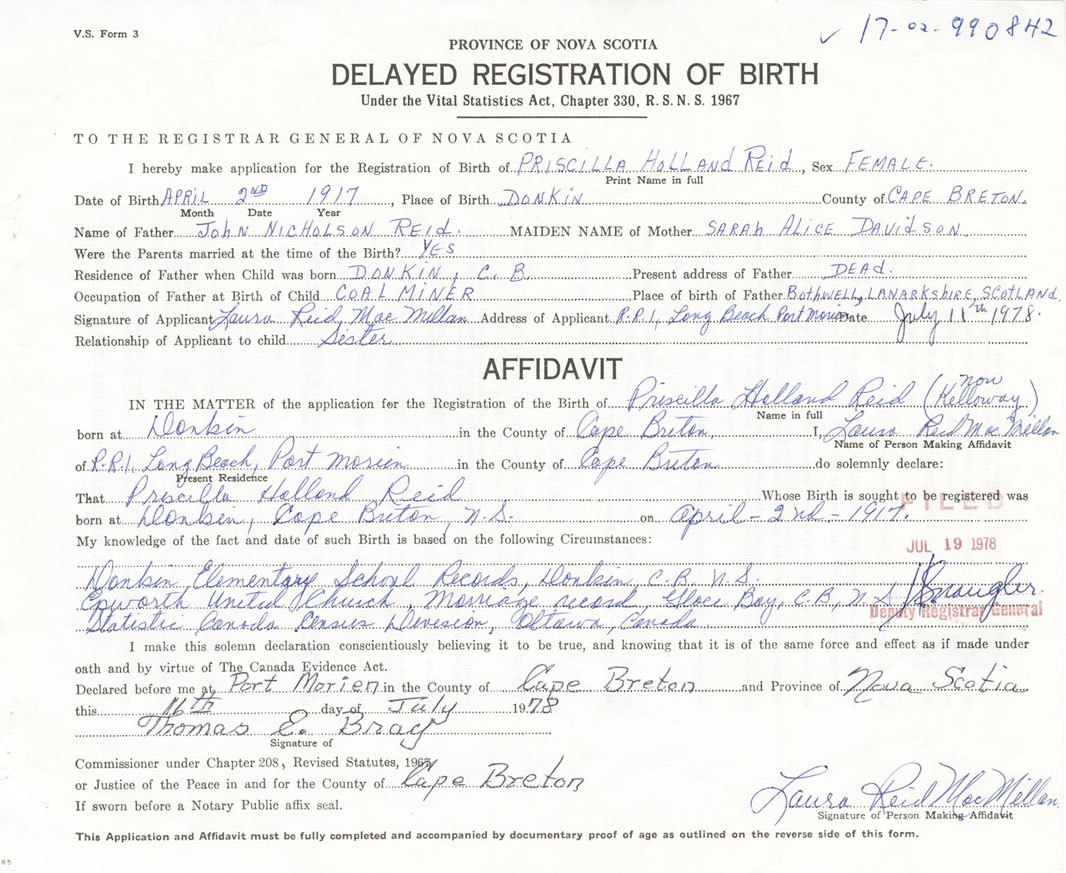 V.S. Form 3
✓ 17-02-990842
PROVINCE OF NOVA SCOTIA
DELAYED REGISTRATION OF BIRTH
Under the Vital Statistics Act, Chapter 330, R.S.N.S. 1967
TO THE REGISTRAR GENERAL OF NOVA SCOTIA
I hereby make application for the Registration of Birth of PRISCILLA HOLLAND REID, Sex FEMALE.
Print Name in full
Date of Birth APRIL 2ND 1917, Place of Birth DONKIN County of CAPE BRETON.
Month Date Year
Name of Father JOHN NICHOLSON REID. MAIDEN NAME of Mother SARAH ALICE DAVIDSON
Were the Parents married at the time of the Birth? YES
Residence of Father when Child was born DONKIN, C.B. Present address of Father DEAD.
Occupation of Father at Birth of Child COAL MINER Place of birth of Father BOTHWELL, LANARKSHIRE, SCOTLAND
Signature of Applicant Laura Reid Mac Millan Address of Applicant R.R.1, Long Beach Port Morien Date July 11th 1978.
Relationship of Applicant to child Sister
AFFIDAVIT
IN THE MATTER of the application for the Registration of the Birth of Priscilla Holland Reid (now Kelloway)
Name in full
born at Donkin in the County of Cape Breton, I, Laura Reid Mac Millan
Name of Person Making Affidavit
of R.R.1, Long Beach, Port Morien in the County of Cape Breton do solemnly declare:
Present Residence
That Priscilla Holland Reid Whose Birth is sought to be registered was
FILED
born at Donkin, Cape Breton, N.S. on April - 2nd - 1917.
My knowledge of the fact and date of such Birth is based on the following Circumstances:
JUL 19 1978
Donkin Elementary School Records, Donkin C.B. N.S.
Epworth United Church, Marriage record, Glace Bay, C.B, N.S.
Deputy Registrar General
Statistic Canada Census Devesion, Ottawa, Canada
I make this solemn declaration conscientiously believing it to be true, and knowing that it is of the same force and effect as if made under
oath and by virtue of The Canada Evidence Act.
Declared before me at Port Morien in the County of Cape Breton and Province of Nova Scotia
this 16th day of July 1978
Thomas E. Bray
Signature of
Commissioner under Chapter 208, Revised Statutes, 1967
or Justice of the Peace in and for the County of Cape Breton
If sworn before a Notary Public affix seal.
Laura Reid MacMillan
Signature of Person Making Affidavit
This Application and Affidavit must be fully completed and accompanied by documentary proof of age as outlined on the reverse side of this form.